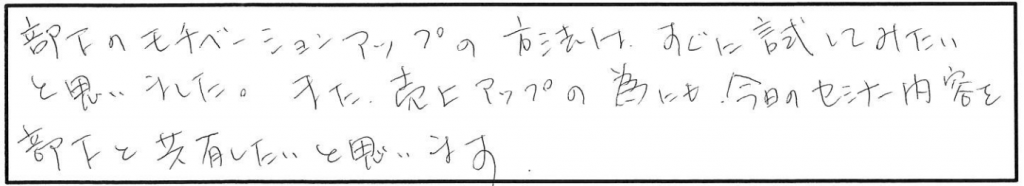 部下のモチベーションアップの方法は、すぐに試してみたい
と思いました。また、売上アップの為にも、今日のセミナー内容を
部下と共有したいと思います。